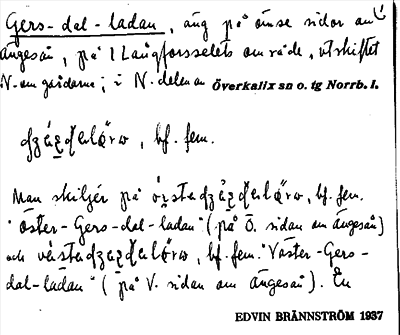 Gers-dal-ladan, äng på ömse sidor om
Ängesån, på Långforsselets område, utskiftet
N. om gårdarne; i N. delen av Överkalix sn o. tg Norrb. l.
, bf. fem.
Man skiljer på , bf. fem.
"Öster-Gers-dal-ladan" (på Ö. sidan om Ängesån)
och , bf. fem. "Väster-Gers-
dal-ladan" (på V. sidan om Ängesån). En
EDVIN BRÄNNSTRÖM 1937